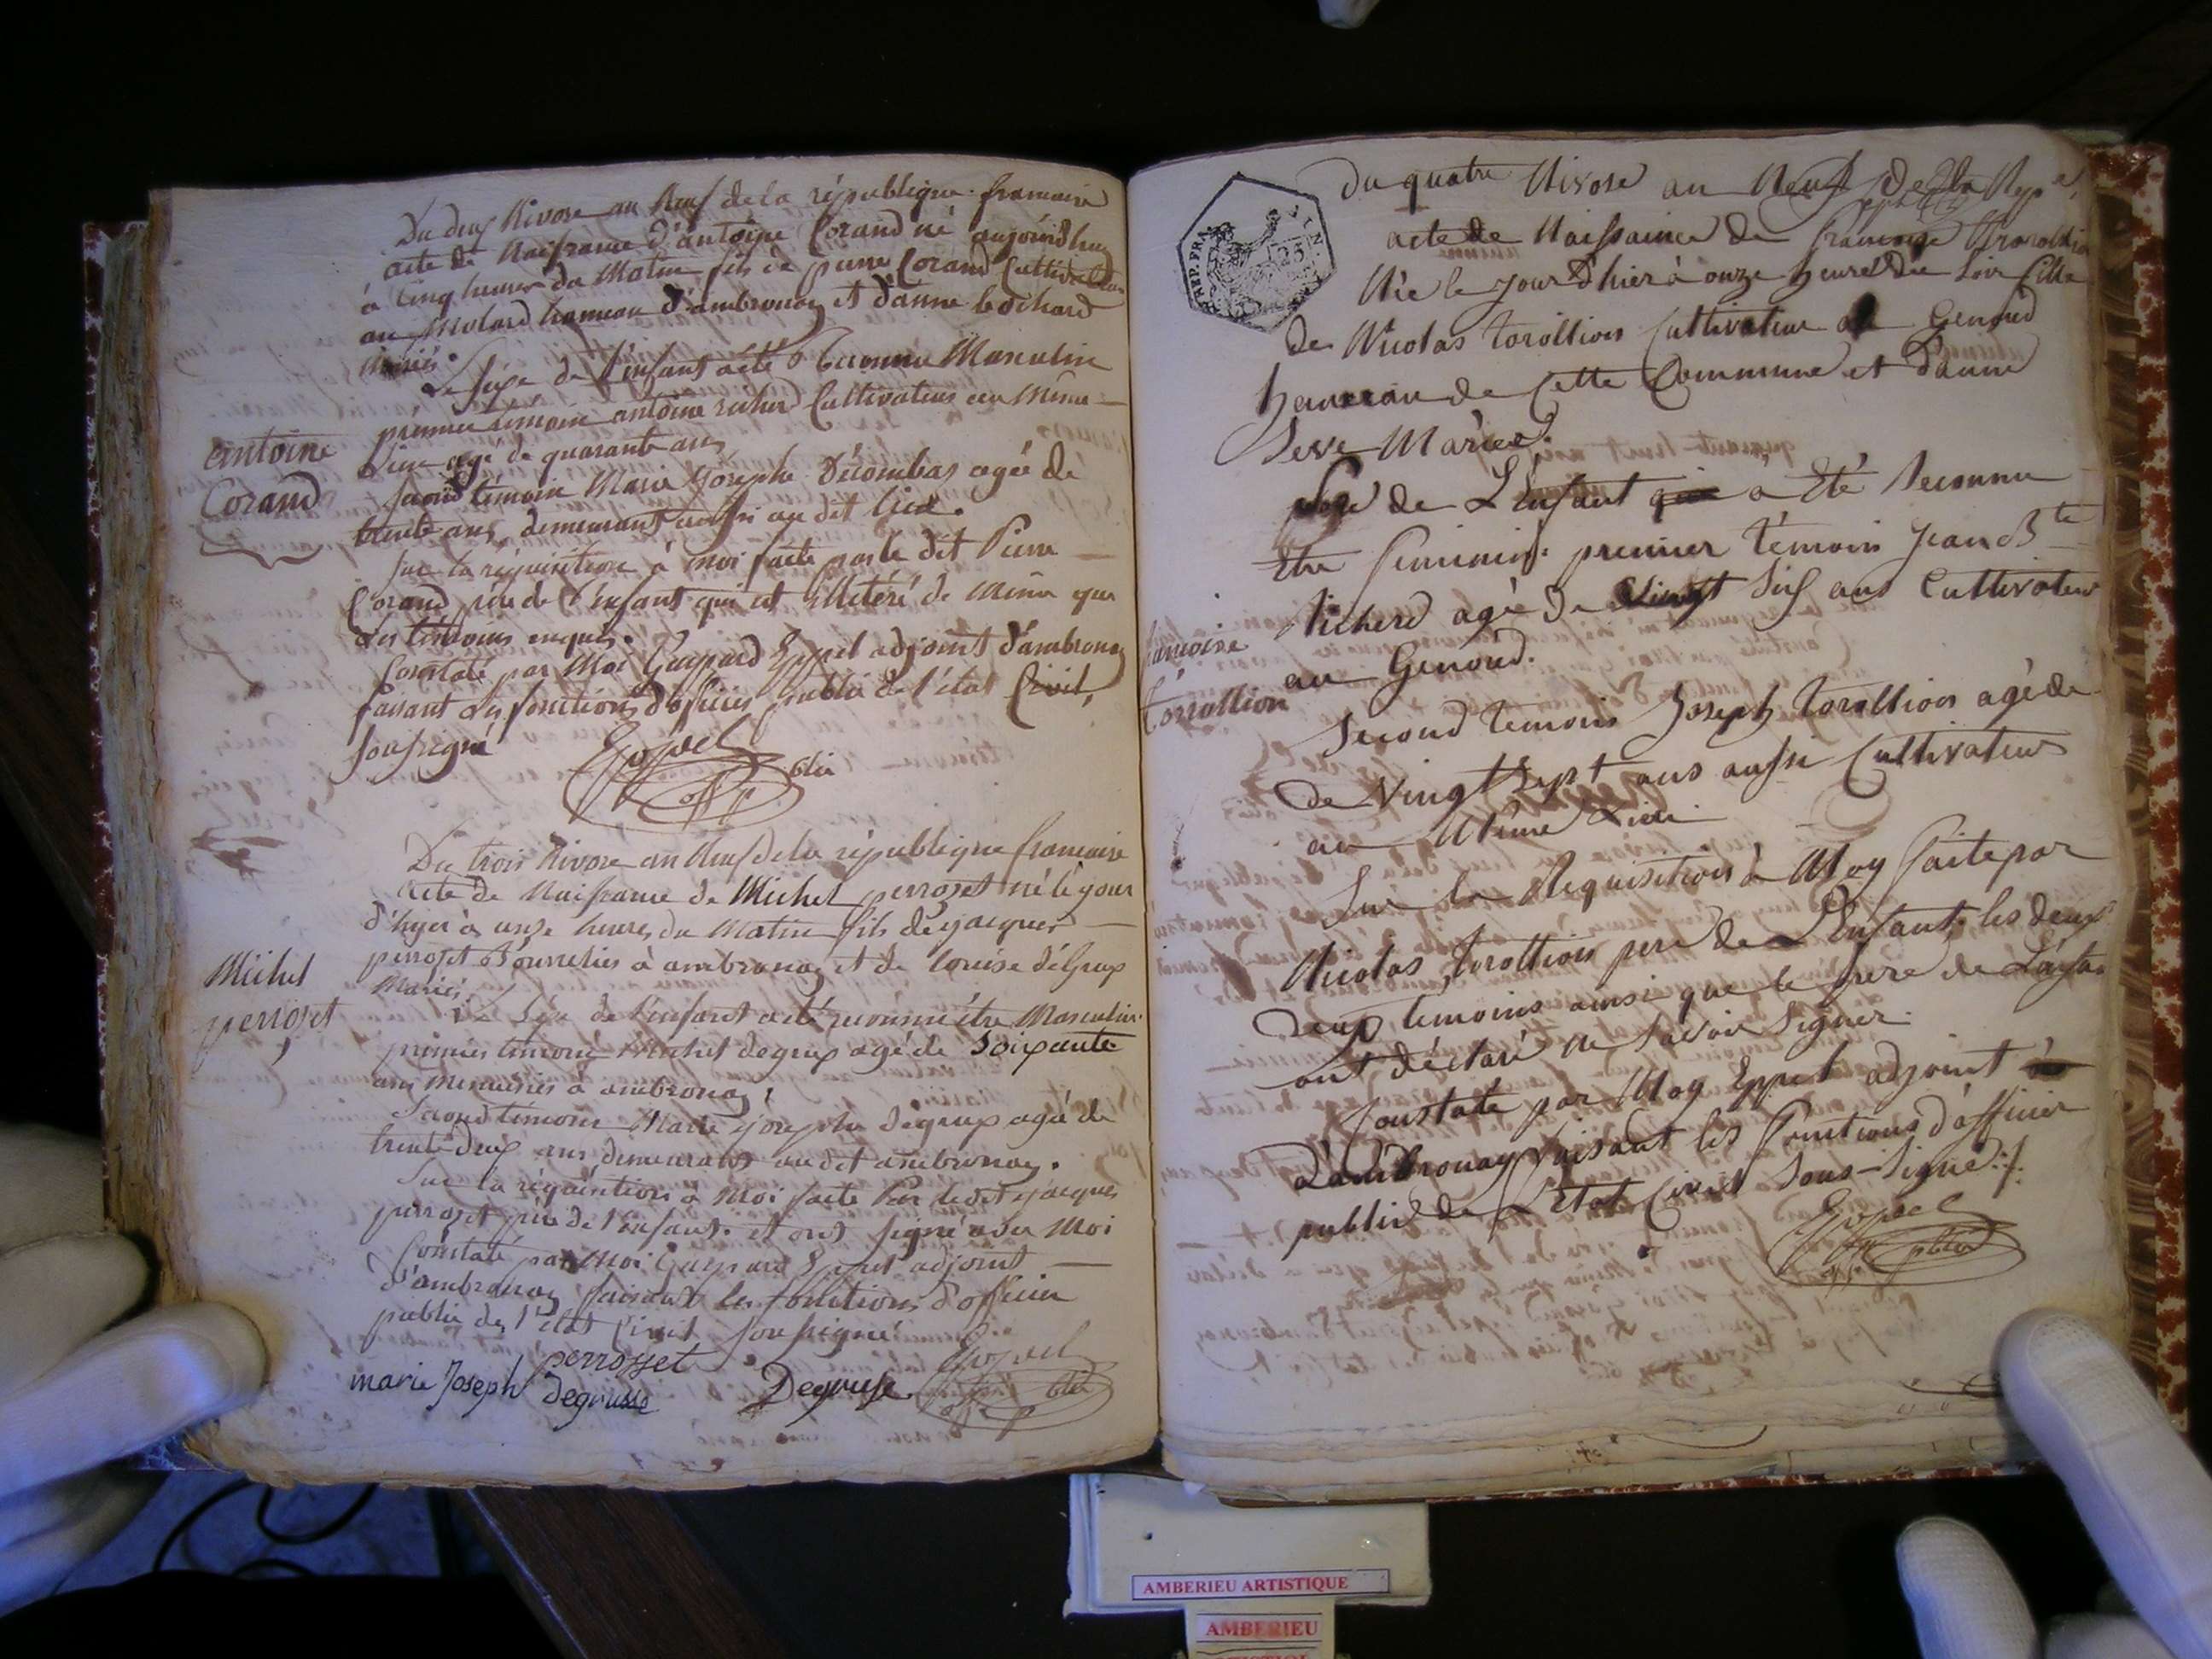 Du deux Nivose an Neuf de la république francaise
acte de Naissance d'antoine Corand né aujourd'huy
à Cinq heures du Matin fils de pierre Corand Cultivateur
au Molard hameau d'ambronay et d'anne bochard
Mariés.
Le sexe de l'enfant a été Reconnu Masculin
premier témoin antoine richerd Cultivateur au même
Lieu agé de quarante ans
antoine
Corand
second témoin Marie Josephe Décombas agée de
trente ans, demeurant aussi au dit lieu.
Sur la réquisition à moi faite par le dit Pierre
Corand père de l'enfant qui est illitéré de même que
les témoins enquis.
Constaté par Moi Gaspard Eppel adjoint d'ambronay
faisant les fonctions d'officier public de l'état Civil,
soussigné
Eppel
off. p. blic
Du trois Nivose an Neuf de la république francaise
acte de Naissance de Michel perroset né le jour
d'hyer à onze heures du Matin fils de jacques
perroset Bourrelier à ambronay et de louise dégrux
Mariés.
Michel
perroset
Le Séxe de l'enfant a été reconnu être Masculin.
premier temoin Michel degrux agé de Soixante
ans Menuisier à ambronay,
Second temoin Marie josephe dégrux agée de
trente-deux ans demeurant au dit ambronay.
Sur la réquisition à Moi faite Par le dit jacques
perroset père de l'enfant. et ont signé avec Moi
Constaté par Moi Gaspard Eppel adjoint
d'ambronay faisant les fonctions d'officier
public de l'état Civil soussigné
perrosset
marie Joseph degrusse
Degruse
Eppel
off. p. blic
REP. FRA
25
Du quatre Nivose an Neuf de la Rep.e
acte de Naissaince de francoise
Née le jour d'hier à onze heures du soir fille
de Nicolas torollion Cultivateur au Genoud
hameau de Cette Commune et d'anne
Seve Mariés.
Sexe de L'Enfant a Eté Reconnu
Etre feminin. premier témoin Jean Bte
Richerd agé de Vingt Six ans Cultivateur
au Genoud.
francoise
torrollion
Second temoin Joseph torollion agé de
de Vingt Sept ans aussi Cultivateur
au Même Lieu
Sur la Requisition à Moy faite par
Nicolas torollion pere de L'Enfant. les deux
deux temoins ainsi que le pere de L'Enfan
ont déclaré ne savoir Signer.
Constaté par Moy Eppel adjoint
d'ambronay faisant les fonctions d'officier
public de L'Etat Civil Sous-Signé./.
Eppel
off. pblic
AMBERIEU ARTISTIQUE
AMBERIEU